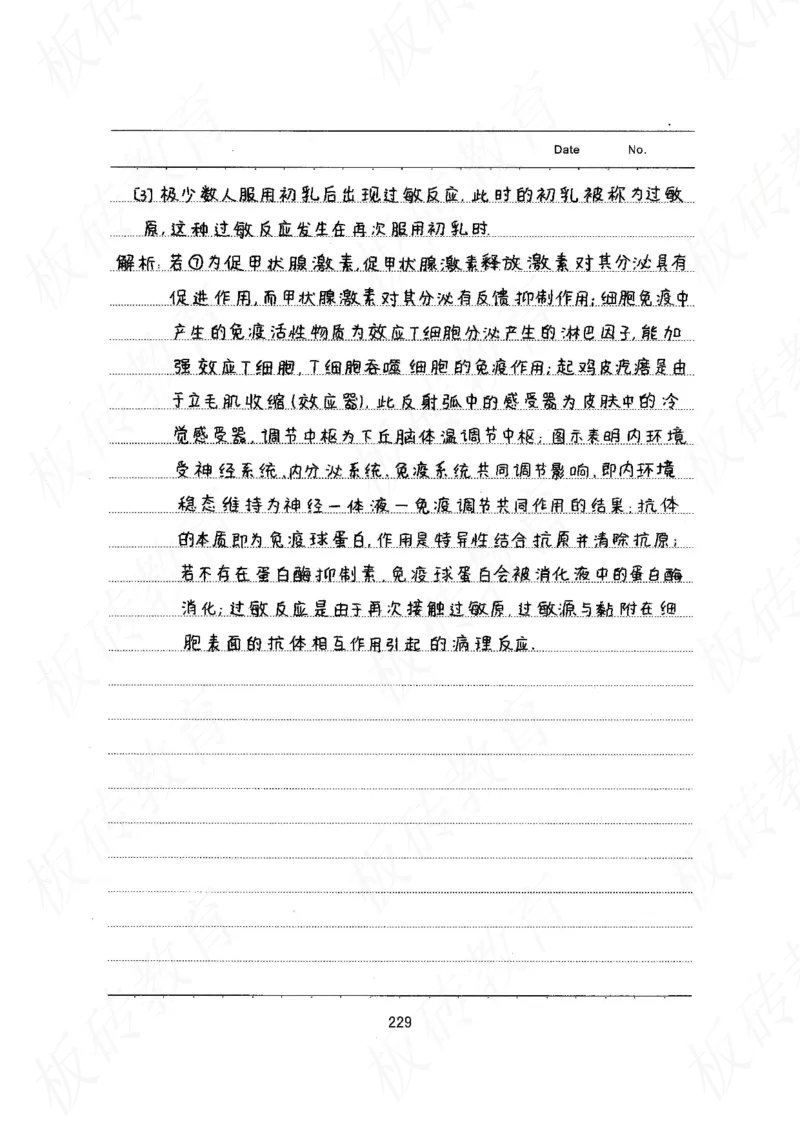 Date No.
[3] 极少数人服用初乳后出现过敏反应,此时的初乳被称为过敏
原,这种过敏反应发生在再次服用初乳时
解析:若①为促甲状腺激素,促甲状腺激素释放激素对其分泌具有
促进作用,而甲状腺激素对其分泌有反馈抑制作用;细胞免疫中
产生的免疫活性物质为效应T细胞分泌产生的淋巴因子,能加
强效应T细胞,T细胞吞噬细胞的免疫作用;起鸡皮疙瘩是由
于立毛肌收缩(效应器),此反射弧中的感受器为皮肤中的冷
觉感受器,调节中枢为下丘脑体温调节中枢;图示表明内环境
受神经系统、内分泌系统、免疫系统共同调节影响,即内环境
稳态维持为神经一体液一免疫调节共同作用的结果;抗体
的本质即为免疫球蛋白,作用是特异性结合抗原并清除抗原;
若不存在蛋白酶抑制素,免疫球蛋白会被消化液中的蛋白酶
消化;过敏反应是由于再次接触过敏原,过敏源与黏附在细
胞表面的抗体相互作用引起的病理反应.
229
板砖教育